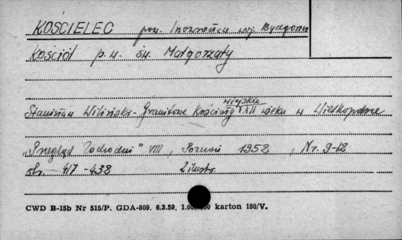 KOŚCIELEC pow. Inowrocław woj. Bydgoszcz
Kościół p.w. św. Małgorzaty
wiejskie
Stanisław Wiliński - Granitowe Kościoły XII wieku w Wielkopolsce
"Przegląd Zachodni" VIII, Poznań 1952, Nr. 9-12
str. 417-438 2 ilustr.
CWD B-15b Nr 515/P. GDA-809. 6.3.59. karton 180/V.